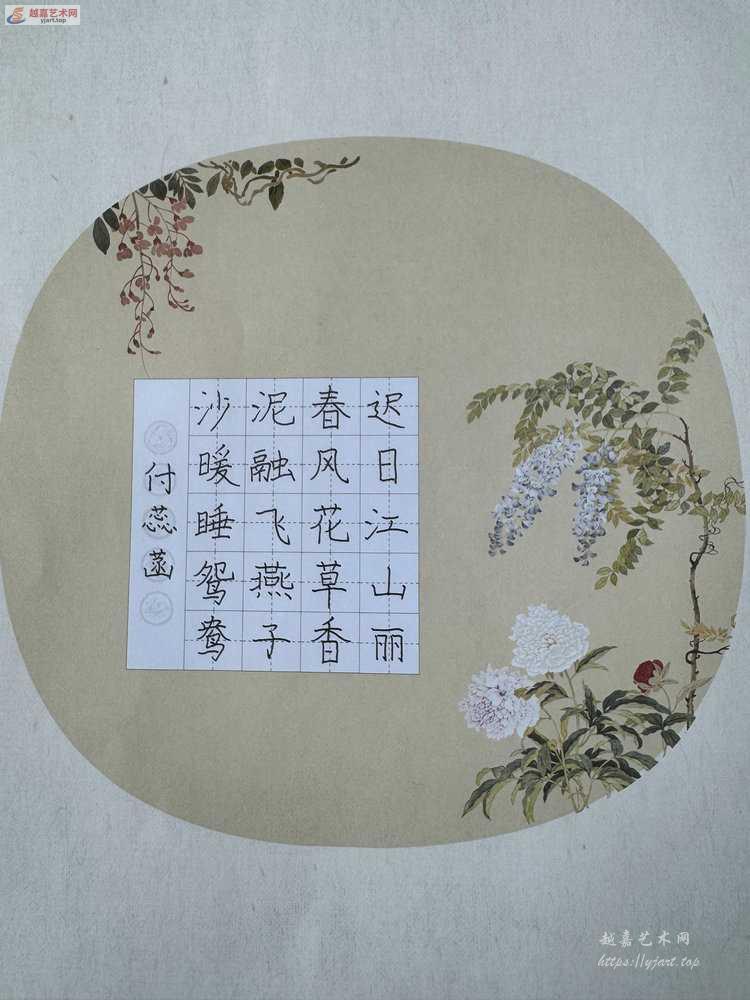 越嘉艺术网
yjart.top
迟日江山丽
春风花草香
泥融飞燕子
沙暖睡鸳鸯
付蕊菡
越嘉艺术网
https://yjart.top